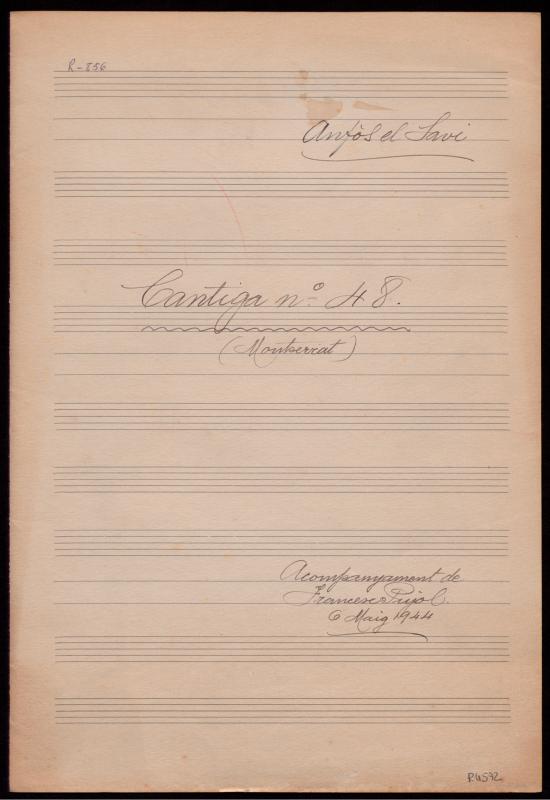 R-856
Anfòs el Savi
Cantiga nº 48.
(Montserrat)
Acompanyament de
Francesc Pujol
6 Maig 1944
P.4572